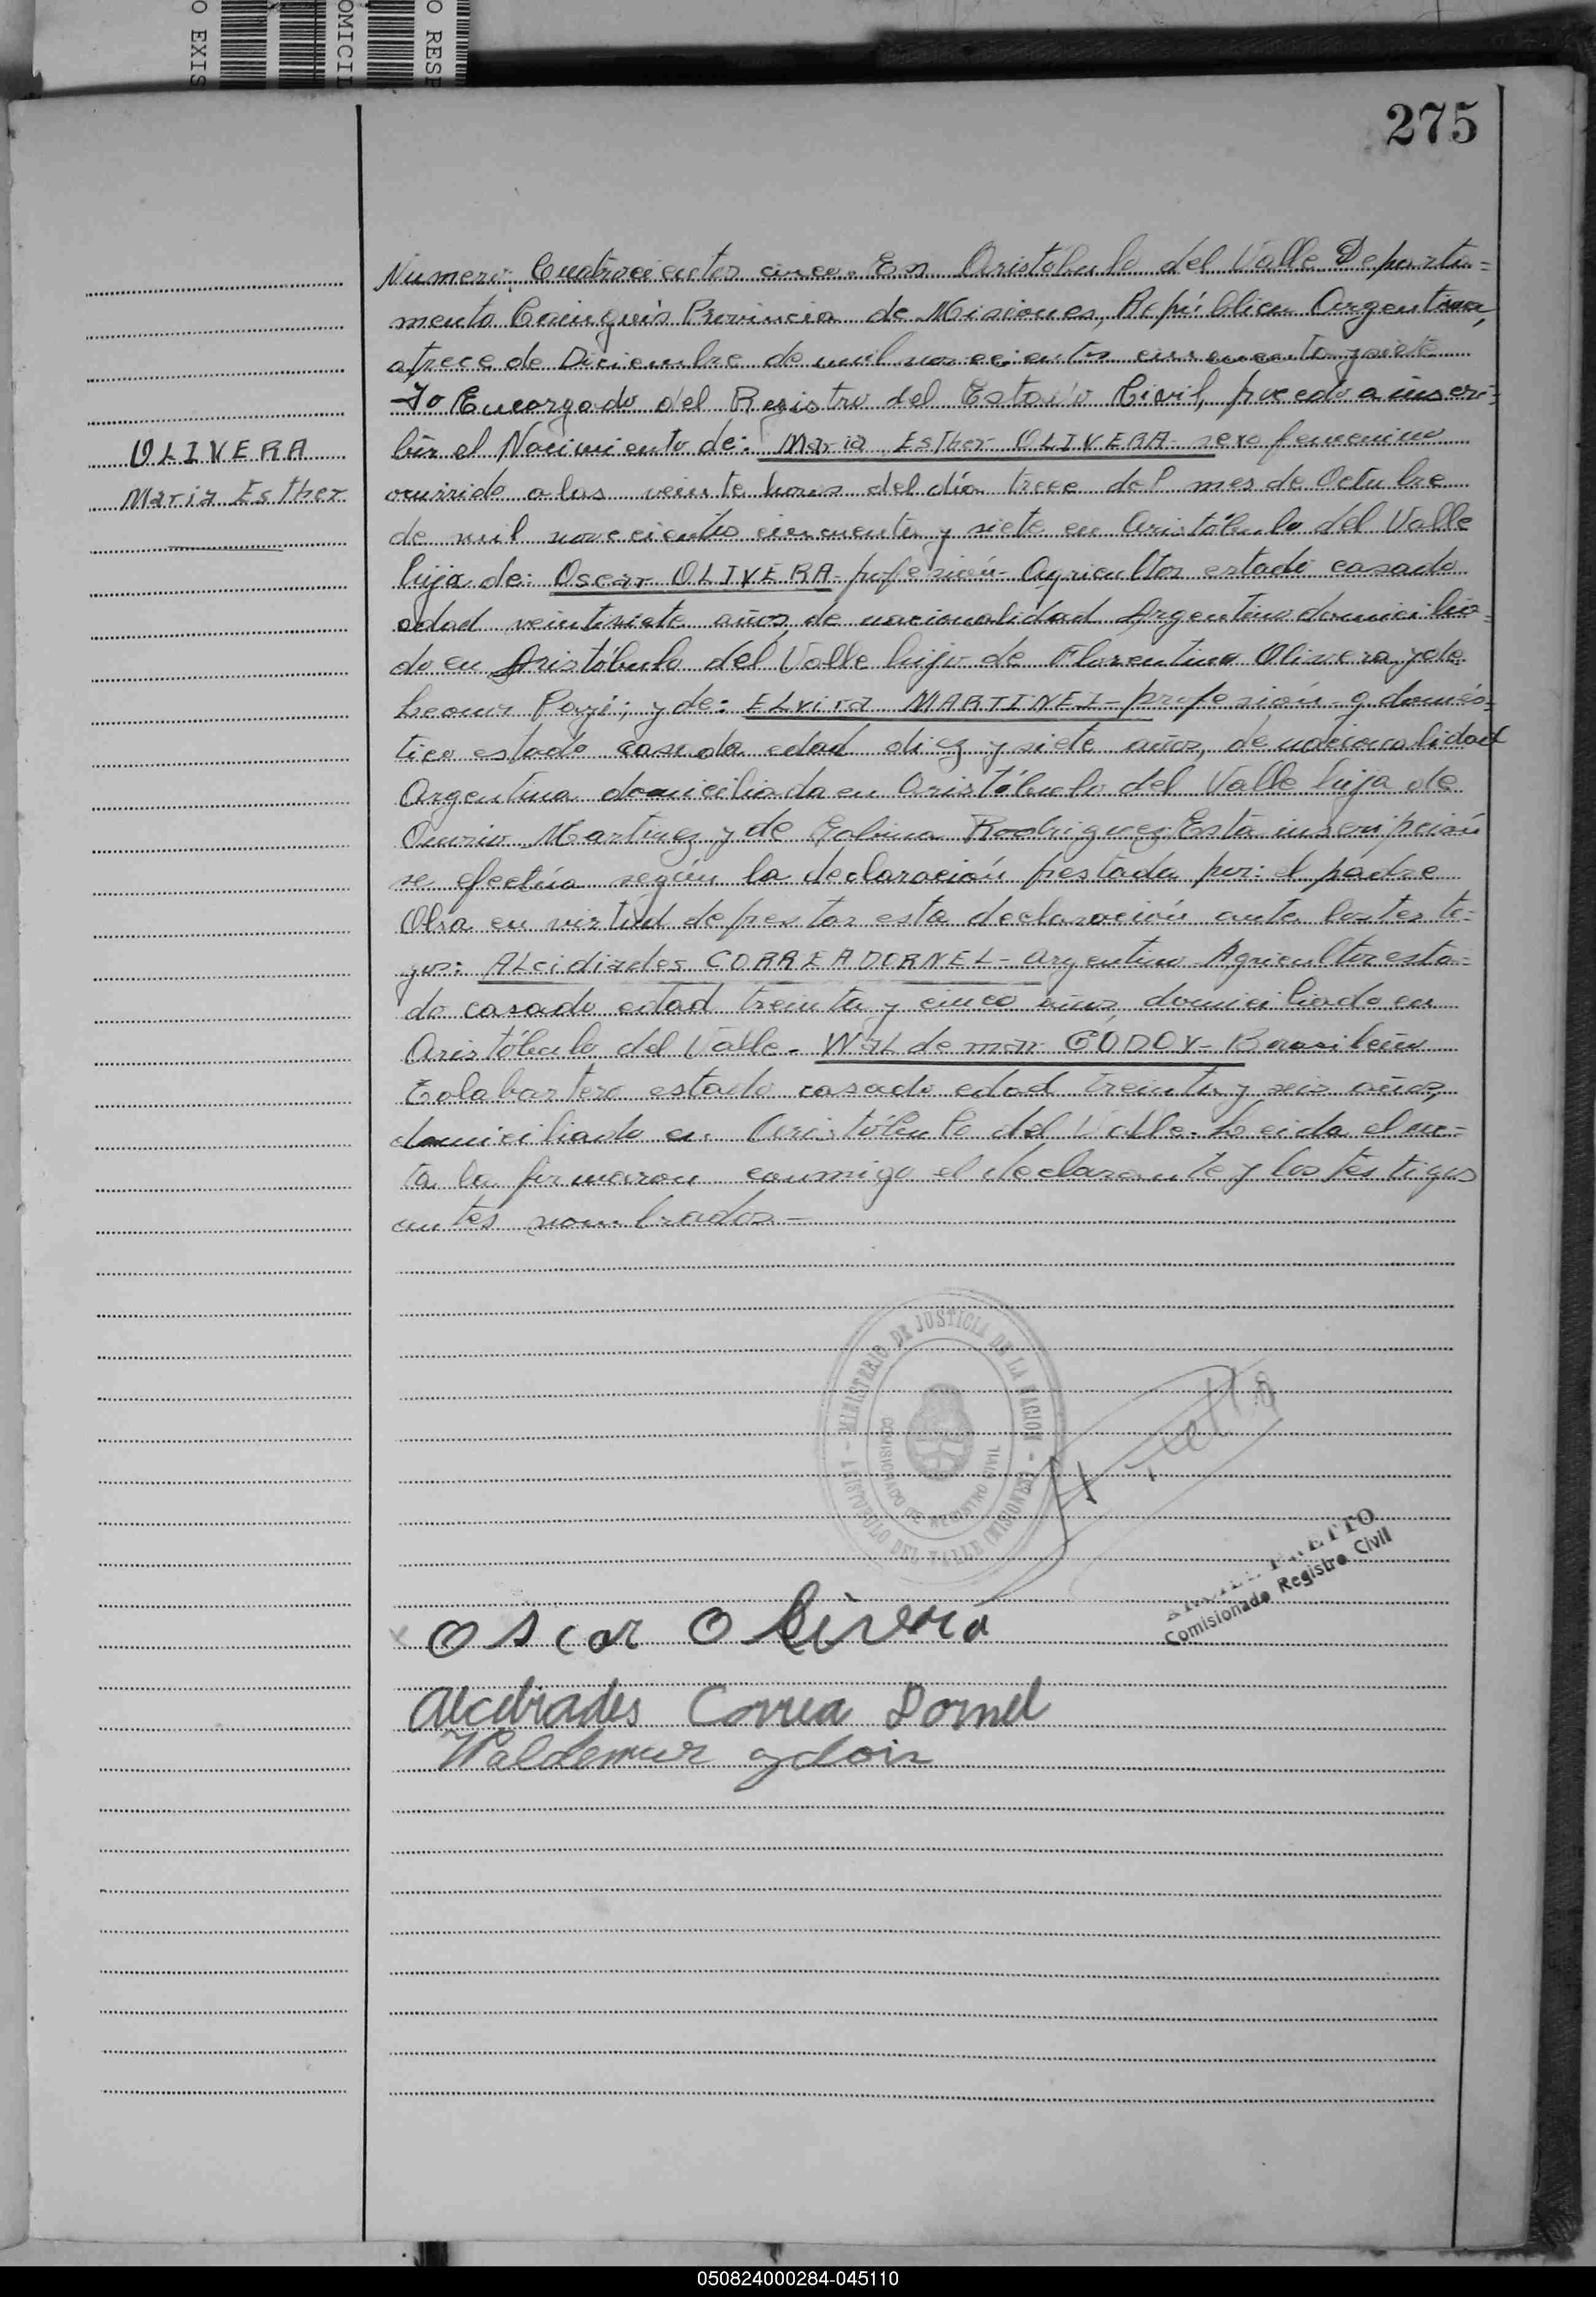 O EXIS
OMICIL
O RESP
275
Numero: Cuatrocientos cinco. En Aristóbulo del Valle Departa=
mento Cainguás Provincia de Misiones, República Argentina,
a trece de Diciembre de mil novecientos cincuenta y siete
Yo Encargado del Registro del Estado Civil, procedo a inscri=
OLIVERA
bir el Nacimiento de: Maria Esther OLIVERA - sexo femenino
Maria Esther
ocurrido a las veinte horas del día trece del mes de Octubre
de mil novecientos cincuenta y siete en Aristóbulo del Valle
hija de: Oscar OLIVERA - profesión - Agricultor estado casado
edad veintisiete años, de nacionalidad Argentino domicilia=
do en Aristóbulo del Valle hijo de Florentino Olivera y de
y de: ELvira MARTINEZ - profesión - q. domés=
tico estado casada edad diez y siete años, de nacionalidad
Argentina domiciliada en Aristóbulo del Valle hija de
Martinez y de Rodriguez. Esta inscripción
se efectúa según la declaración prestada por: el padre
Obra en virtud de prestar esta declaración ante los testi=
gos: ALcidiades CORREA DORNEL - argentino Agricultor esta=
do casado edad treinta y cinco años, domiciliado en
Aristóbulo del Valle. WaLdemar GODOY - Brasileño
Talabartero estado casado edad treinta y seis años,
domiciliado en Aristóbulo del Valle. Leida el ac=
ta la firmaron conmigo el declarante y los testigos
antes nombrados -
MINISTERIO DE JUSTICIA DE LA NACION
COMISIONADO DE REGISTRO CIVIL
ARISTOBULO DEL VALLE (MISIONES)
PRETTO
Comisionado Registro Civil
x Oscar Olivera
Alcibiades Correa Dornel
Waldemar
050824000284-045110